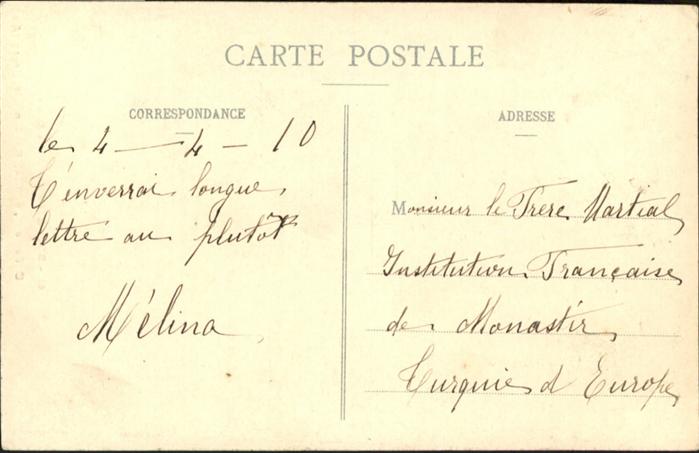 CARTE POSTALE
CORRESPONDANCE
le 4 — 4 — 10
T'enverrai longue
lettre au plutôt
Mélina
ADRESSE
Monsieur le Frère Martial
Institution Française
de Monastir
Turquie d Europe